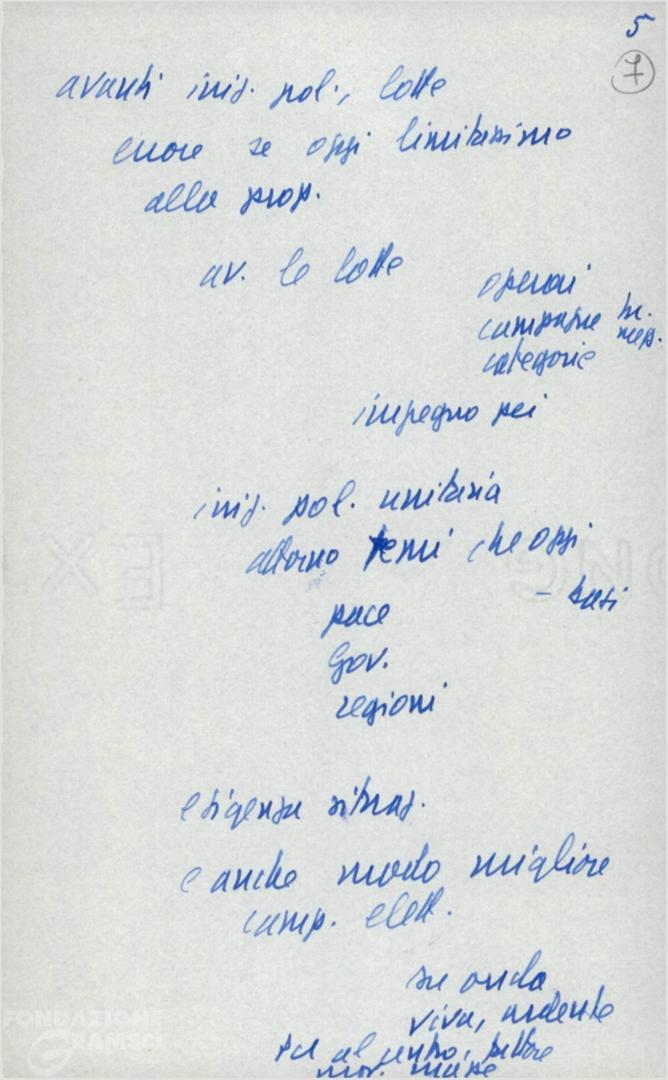 5
7
avanti iniz. pol., lotte
errore se oggi limitassimo
alla prop.
av. le lotte
operai
campagne
categorie
impegno pci
iniz. pol. unitaria
attorno temi che oggi
- basi
pace
Gov.
regioni
esigenza situaz.
e anche modo migliore
camp. elett.
su onda
viva, ardente
al centro, settore
mov. masse
FONDAZIONE
GRAMSCI